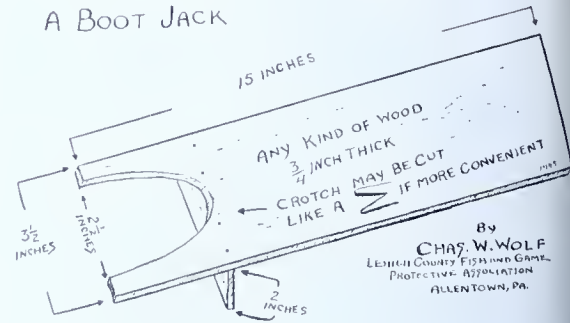 A BOOT JACK
15 INCHES
ANY KIND OF WOOD
3/4 INCH THICK
CROTCH MAY BE CUT
LIKE A IF MORE CONVENIENT
3 1/2
INCHES
2 1/2
INCHES
2
INCHES
By
CHAS. W. WOLF
LEHIGH COUNTY FISH AND GAME
PROTECTIVE ASSOCIATION
ALLENTOWN, PA.